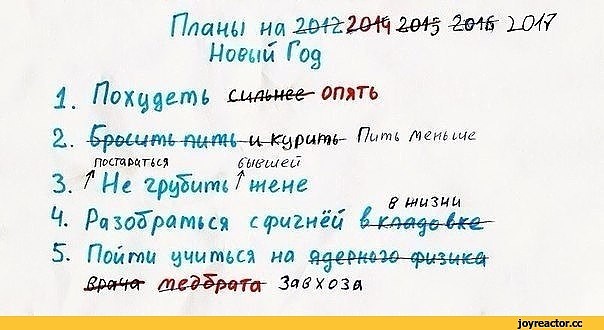 Планы на 2012 2014 2015 2016 2017
Новый Год
1. Похудеть сильнее опять
2. Бросить пить и курить Пить меньше
постараться бывшей
3. Не грубить жене
в жизни
4. Разобраться с фигнёй в кладовке
5. Пойти учиться на ядерного физика
врача медбрата Завхоза
joyreactor.cc